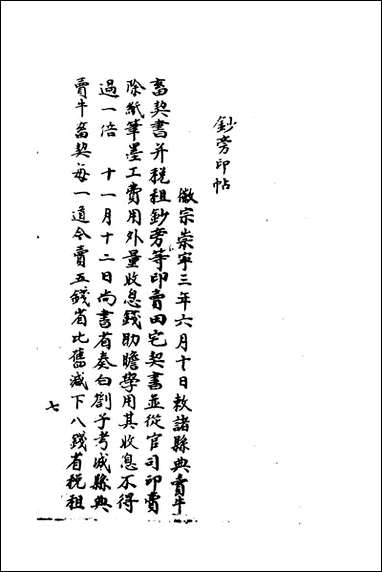 鈔旁印帖
徽宗崇寧三年六月十日敕諸縣典賣牛
畜契書并稅租鈔旁等印賣田宅契書並從官司印賣
除紙筆墨工費用外量收息錢助贍學用其收息不得
過一倍　十一月十二日尚書省奏白劄子考城縣典
賣牛畜契每一道今賣五錢省比舊減下八錢省稅租
七